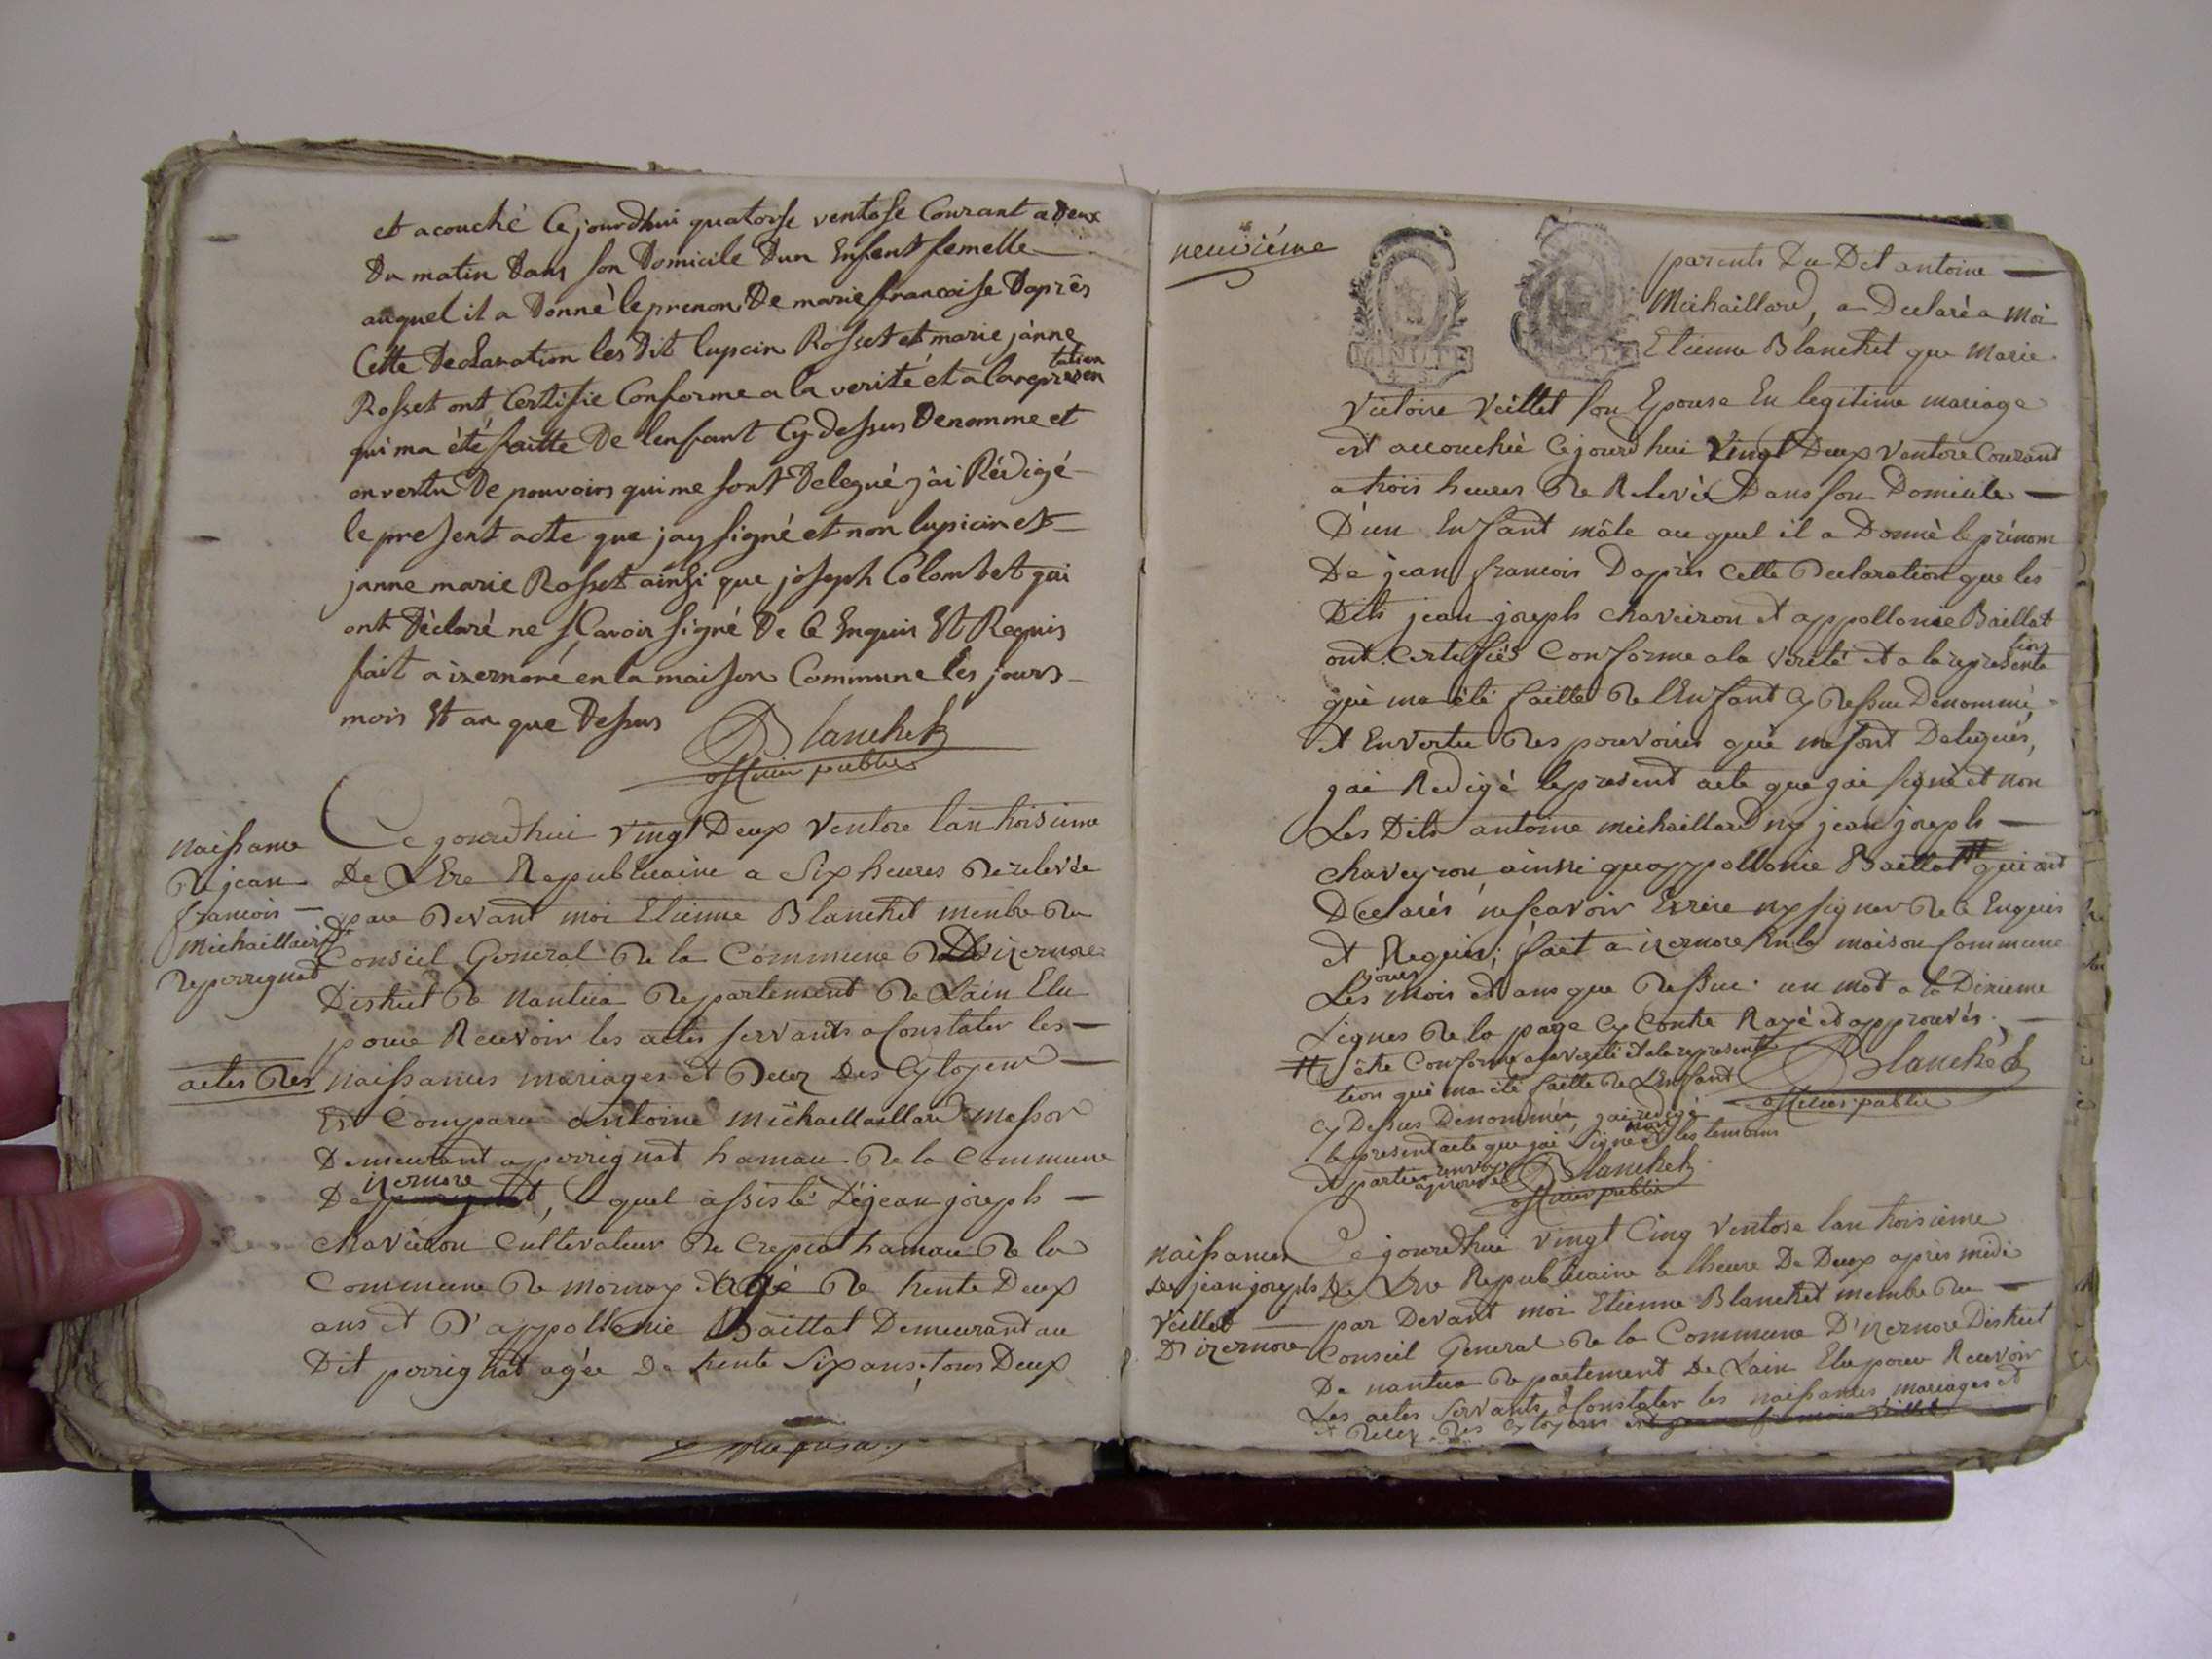 et acouché Cejourdhui quatorse ventose Courant a deux
Du matin Dans son Domicile Dun Enfent femelle
auquel il a Donné le prenon De marie francoise Daprês
Cette Declaration les dit lupcin Rosset et marie janne
Rosset ont Certifie Conforme a la verité et a la represen
tation
qui ma été faitte De lenfant Cy dessus Denomme et
en vertu De pouvoirs qui me sont Delegué j'ai Rédigé
le present acte que jay signé et non lupicin et
janne marie Rosset ainsi que joseph Colombet qui
ont Déclaré ne sCavoir signé De Ce Enquis Et Requis
fait a izernore en la maison Commune les jours
mois Et an que Dessus
Blanchet
officier public
naissance
de jean
francois
Michaillard
de perrignat
Ce jourdhui vingt Deux Ventose lan troisieme
De LEre Republicaine a Six heures de relevée
par devant moi Etienne Blanchet menbre du
Conseil General de la Commune D'izernore
District de nantua departement de Lain Elu
pour Recevoir les actes servants a Constater les
actes des naissances mariages et deces Des Cytoyens
Et Comparu antoine michaillaillard
Demeurant a perrignat hamau de la Commune
izernore
De perrignat, quel assisté De jean joseph
chaveiron Cultivateur de Crepiat hamau de la
Commune de mornay Agé de trente Deux
ans et D'appollonie Baillat Demeurant au
Dit perrignat agée De trente Six ans, tous Deux
neuvième
MINUTE
parents Du Dit antoine
Michaillard, a Declaré a Moi
Etienne Blanchet que Marie
Victoire Veillet son Epouse En legitime mariage
est accouchée Cejourdhui Vingt Deux Ventose Courant
a trois heures de Relevée Dans son Domicile
D'un Enfant mâle au quel il a Donné le prénom
De jean francois Daprès Cette declaration que les
Dits jean joseph chaveiron et appollonie Baillat
ont Certifiés Conforme a la verité et a la represente
tion
qui ma été faitte de l'Enfant Cy dessus Dénommé,
Et En vertu des pouvoirs qui me sont Delegués,
jai Redigé le present acte que jai signé et non
Les Dits antoine michaillard ny jean joseph
chaveyron, ainssi quappollonie Baillat # qui ont
Declarés ne scavoir Ecrire ny signer de Ce Enquis
et Requis; fait a izernore En la maison Commune
jours
Les mois et ans que dessus. un mot a la Dixieme
Lignes de la page Cy Contre Rayé et approuvés.
# être Conforme a la verité et a la represente
tion qui ma été faitte de LEnfant
Cy Dessus Dénommée, jai redigé
le present acte que jai signé et non les temoins
et parties renvoy
approuvé
Blanchet
officier public
Blanchet
officier public
naissances
de jean joseph
Veillet
D'izernore
Ce jourdhui vingt Cinq Ventose lan troisieme
De LEre Republicaine a lheure De Deux après midi
par Devant moi Etienne Blanchet membre du
Conseil General de la Commune D'izernore District
De nantua departement De Lain Elu pour Recevoir
Les actes servants a Constater les naissances, mariages et
et deces des Cytoyens